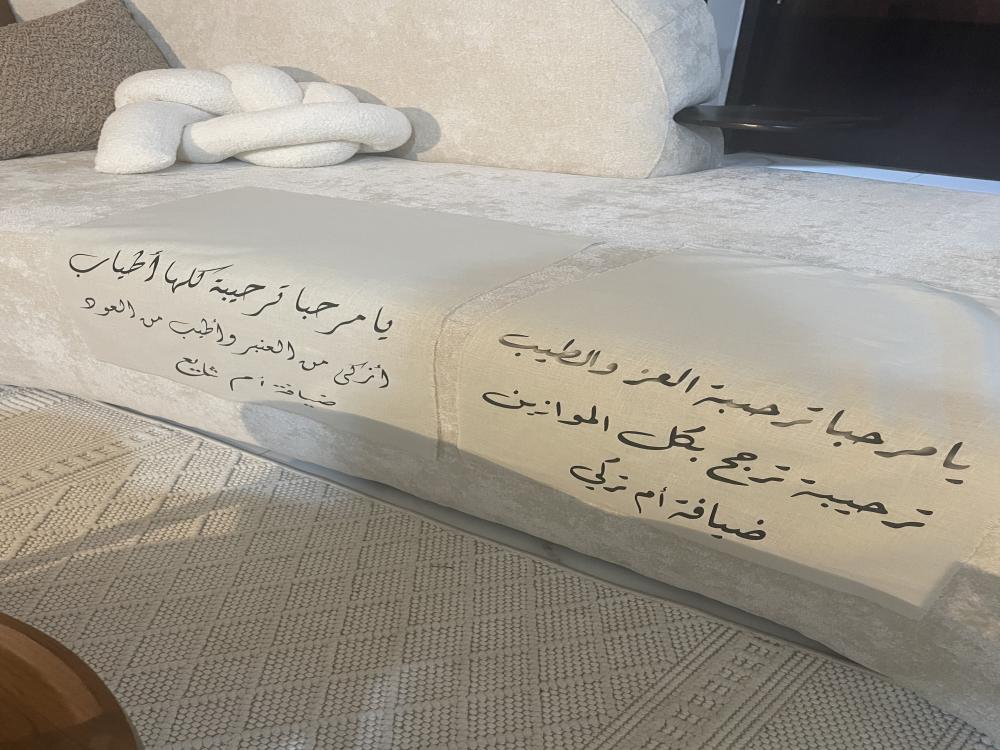 يا مرحبا ترحيبة العز والطيب
ترحيبة ترجح بكل الموازين
ضيافة أم تركي
يا مرحبا ترحيبة كلها أطياب
أزكى من العنبر وأطيب من العود
ضيافة أم شايع